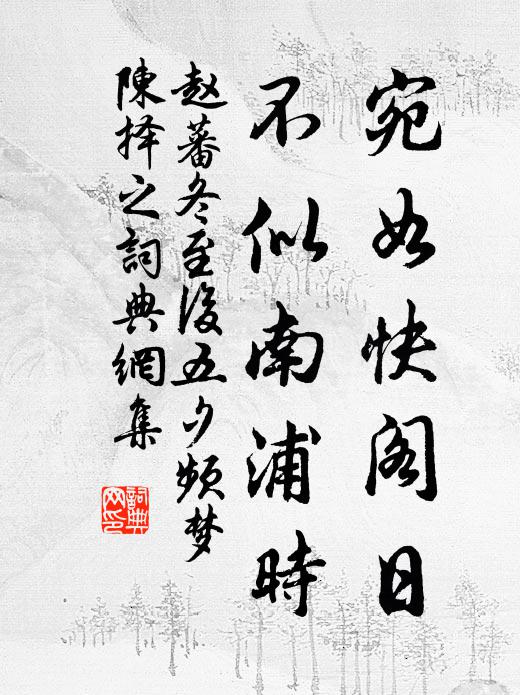 宛如快阁日
不似南浦時
赵蕃冬至後五夕频梦
陳择之詞典網集
詞典網印